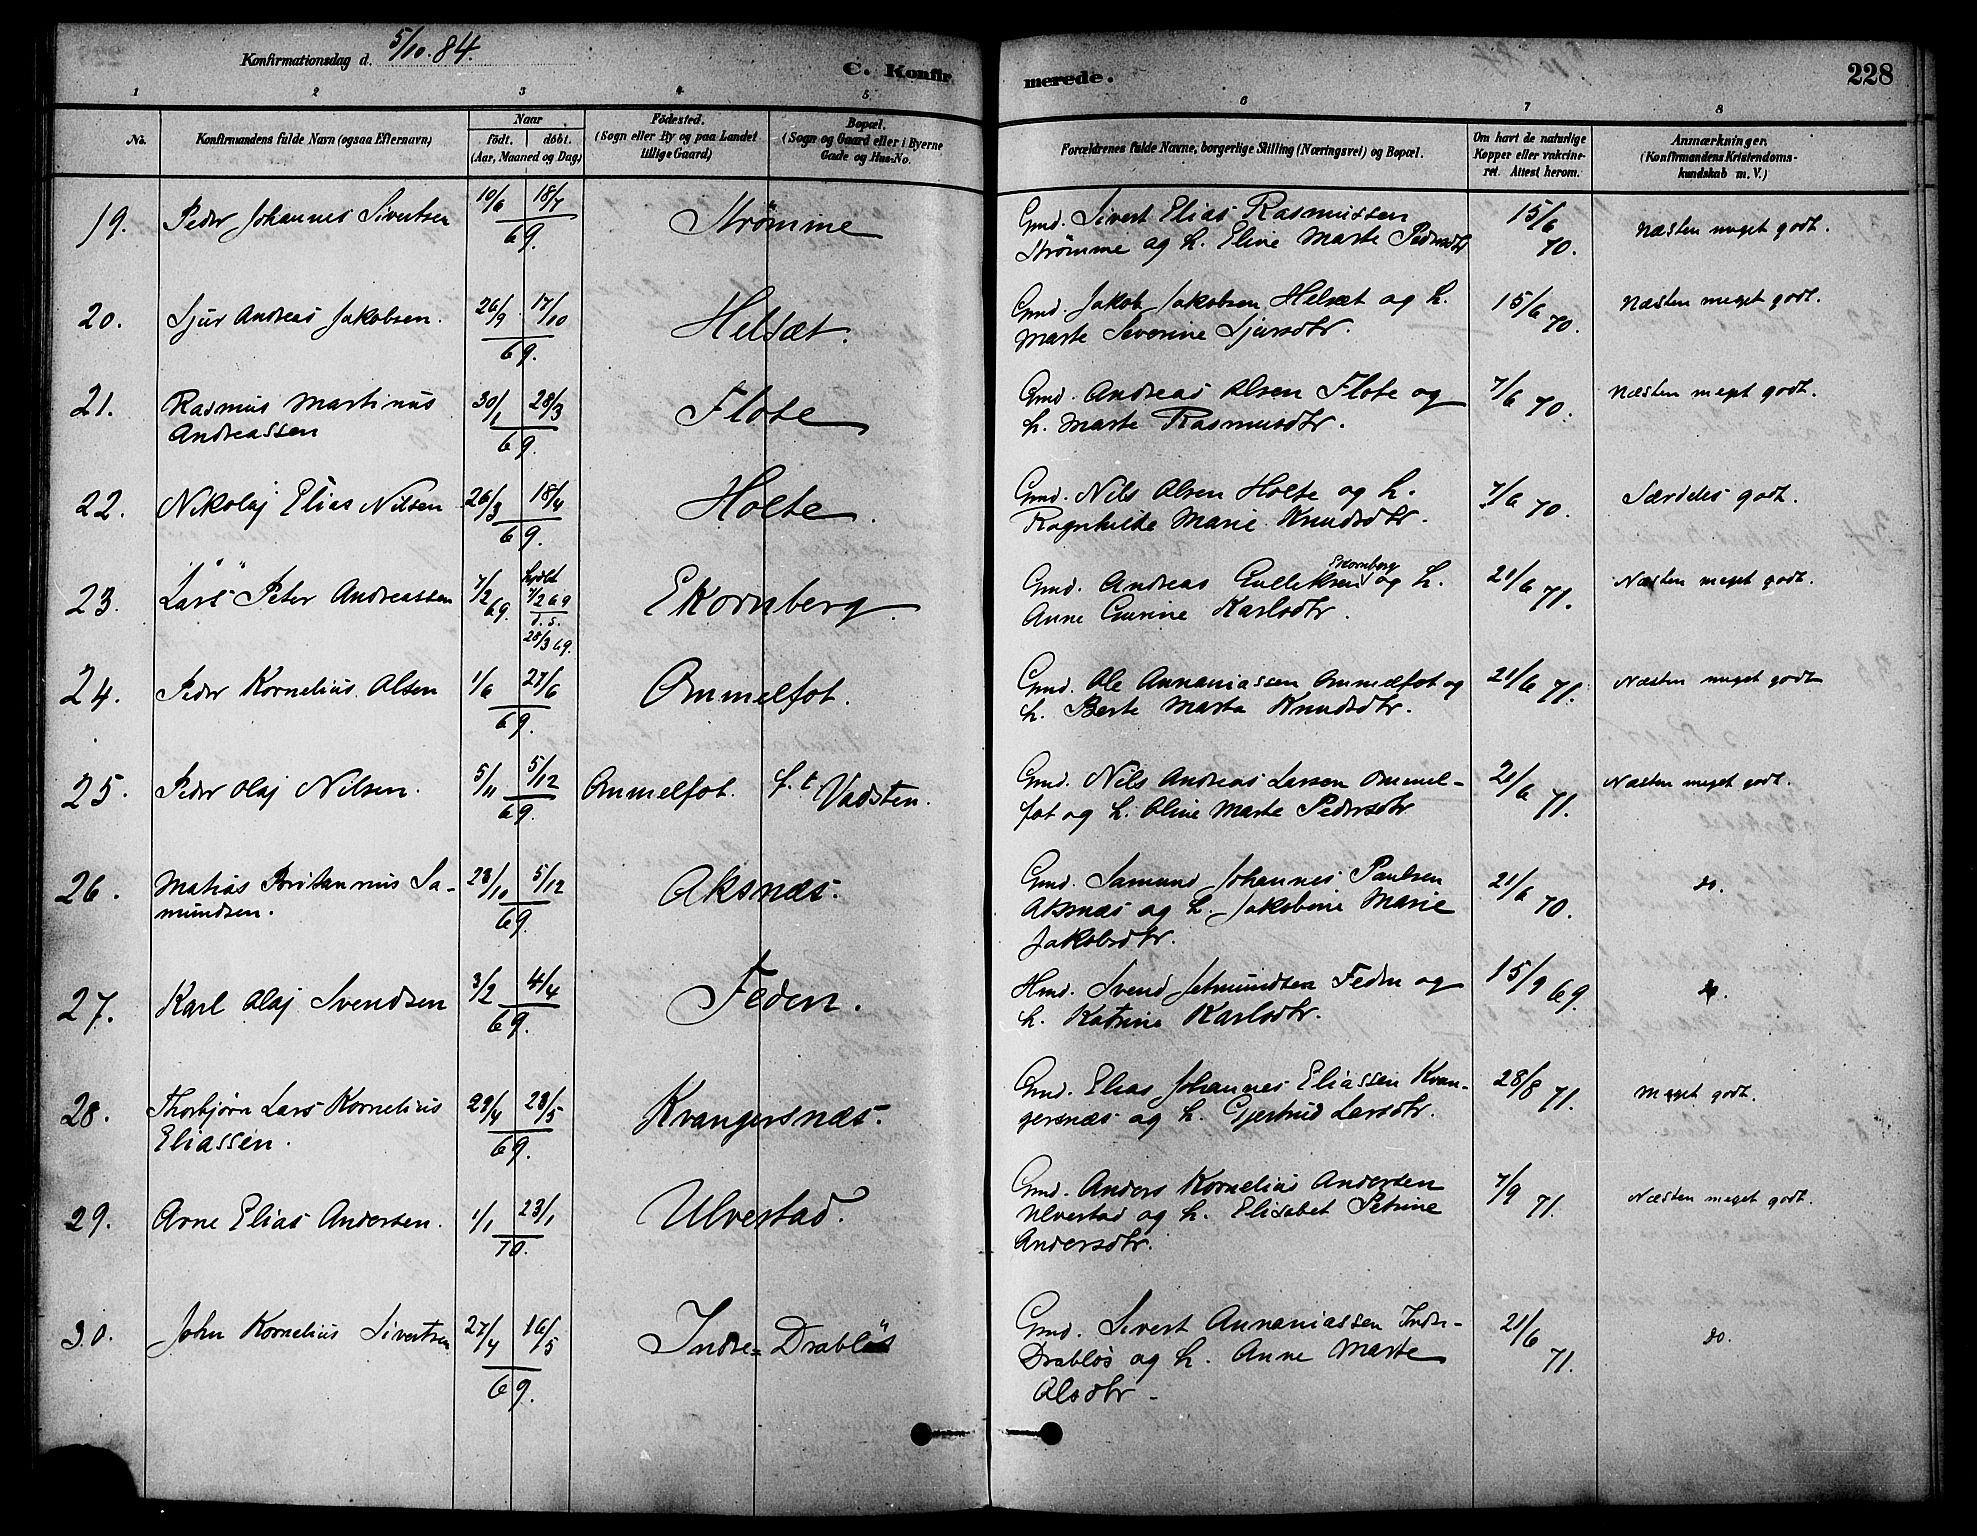 Konfirmationsdag d. 5/10. 84.
C. Konfirmerede.
228
1 2 3 4 5 6 7 8
No.
Konfirmandens fulde Navn (ogsaa Efternavn)
Naar
födt. döbt.
(Aar, Maaned og Dag)
Födested.
(Sogn eller By og paa Landet
tillige Gaard)
Bopæl.
(Sogn og Gaard eller i Byerne
Gade og Hus-No.
Forældrenes fulde Navne, borgerlige Stilling (Næringsvei) og Bopæl.
Om havt de naturlige
Kopper eller vakcine-
ret. Attest herom.
Anmærkninger.
(Konfirmandens Kristendoms-
kundskab m. V.)
19. Peder Johannes Sivertsen 10/6 18/7 69. Strömme
Gmd. Sivert Elias Rasmussen
Strømme og h. Eline Marte Pedersdtr
15/6 70. Næsten meget godt.
20. Sjur Andreas Jakobsen. 26/9 17/10 69. Helsæt.
Gmd. Jakob Jakobsen Helsæt og h.
Marte Severine Sjursdtr.
15/6 70. Næsten meget godt.
21. Rasmus Martinus
Andreassen 30/1 28/3 69. Flote
Gmd. Andreas Olsen Flote og
h. Marte Rasmusdtr.
7/6 70. Næsten meget godt.
22. Nikolaj Elias Nilsen 26/3 18/4 69. Holte.
Gmd. Nils Olsen Holte og h.
Ragnhilde Marie Knudsdtr.
7/6 70. Særdeles godt.
23. Lars Peter Andreassen 7/2 69. hjdbt 7/2 69 i. s. 28/3 69. Ekornberg.
Gmd. Andreas Gulleksen Ekornberg og h.
Anne Gurine Karlsdtr.
21/6 71. Næsten meget godt.
24. Peder Kornelius Olsen 1/6 27/6 69. Ommelfot.
Gmd. Ole Annaniassen Ommelfot og
h. Berte Marta Knudsdtr.
21/6 71. Næsten meget godt
25. Peder Olaj Nilsen. 5/11 5/12 69. Ommelfot. f. t. Vadsten.
Gmd. Nils Andreas Larsen Ommel-
fot og h. Oline Marte Pedersdtr
21/6 71. Næsten meget godt.
26. Matias Britannus Sa-
mundsen. 23/10 5/12 69. Aksnæs.
Gmd. Samund Johannes Paulsen
Aksnæs og h. Jakobine Marie
Jakobsdtr.
21/6 70. do.
27. Karl Olaj Svendsen 3/2 4/4 69. Feden.
Hmd. Svend Jetmundsen Feden og
h. Katrine Karlsdtr.
15/9 69. do.
28. Thorbjørn Lars Kornelius
Eliassen. 29/4 23/5 69. Kvangersnæs.
Gmd. Elias Johannes Eliassen Kvan-
gersnæs og h. Gjertrud Larsdtr.
28/8 71. Meget godt.
29. Arne Elias Andersen. 1/1 23/1 70. Ulvestad.
Gmd. Anders Kornelius Andersen
Ulvestad og h. Elisabet Petrine
Andersdtr.
7/9 71. Næsten meget godt.
30. John Kornelius Sivertsen 27/4 16/5 69. Indre-Drabløs
Gmd. Sivert Annaniassen Indre-
Drabløs og h. Anne Marte
Olsdtr
21/6 71. do.